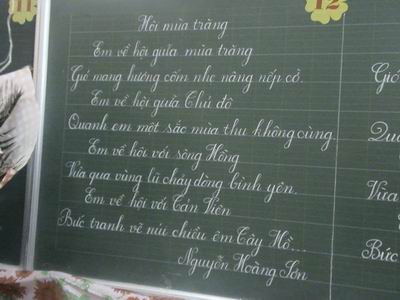 12
Hội mùa trăng
Em về hội giữa mùa trăng
Gió mang hương cốm nhẹ nâng nếp cờ.
Em về hội giữa Thủ đô
Quanh em một sắc mùa thu không cùng
Em về hội với sông Hồng
Vừa qua vùng lũ chảy dòng bình yên.
Em về hội với Tản Viên
Bức tranh vẽ núi chiều êm Tây Hồ...
Nguyễn Hoàng Sơn
Gió
Qua
Vừa
Bức